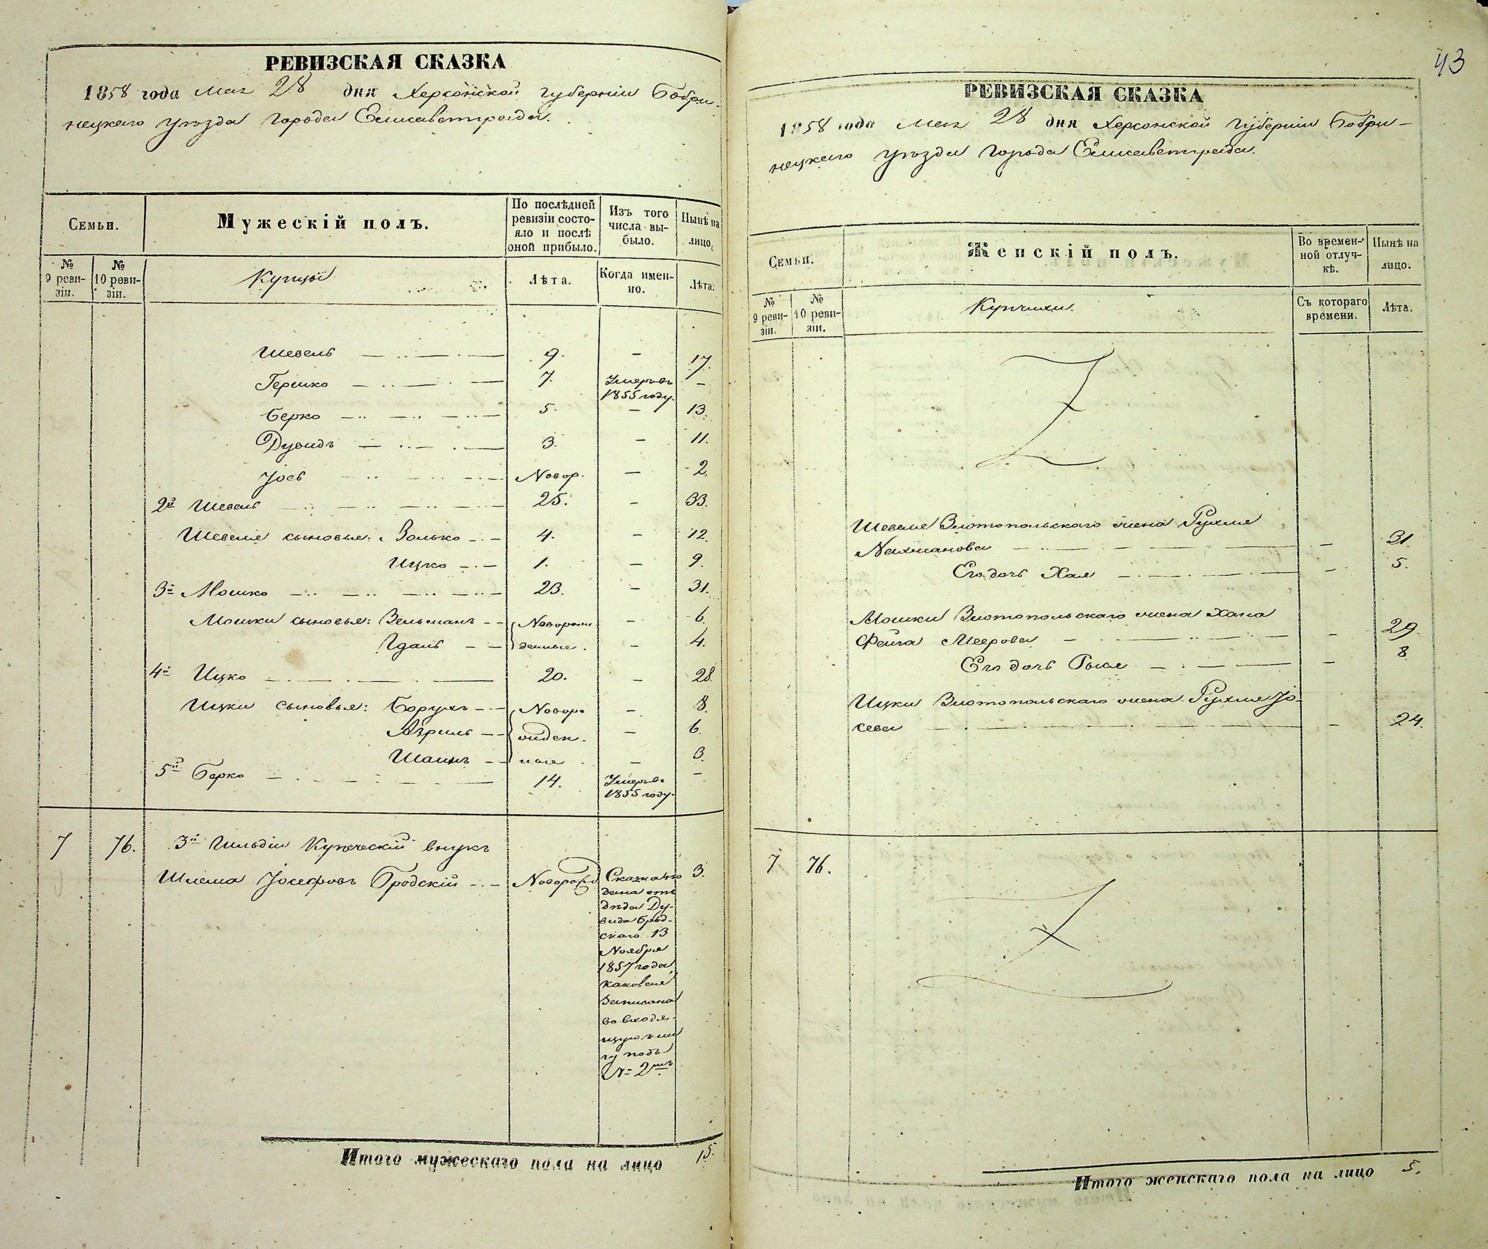 РЕВИЗСКАЯ СКАЗКА
1858 года Мая 28 дня Херсонской губерніи Бобри-
нецкаго уѣзда города Елисаветграда.
Семьи.
Мужескій полъ.
По послѣдней ревизіи состояло и послѣ оной прибыло.
Изъ того числа выбыло.
Нынѣ на лицо.
№ 9 ревизіи.
№ 10 ревизіи.
Купцы
Лѣта.
Когда именно.
Лѣта.
Шевель 9. — 17.
Гершко 7. Умеръ въ 1855 году. —
Берко 5. — 13.
Дувидъ 3. — 11.
Іось Новор. — 2.
2й Шевель 25. — 33.
Шевеля сыновья: Волько 4. — 12.
Ицко 1. — 9.
3й Мошко 23. — 31.
Мошки сыновья: Зельманъ Новорож- — 6.
Гдаль денные. — 4.
4й Ицко 20. — 28.
Ицки сыновья: Борухъ Новор- — 8.
Априль ожден- — 6.
Шаинъ ные. — 3.
5й Берко 14. Умеръ въ 1855 году. —
7 76. 3й Гильдіи Купеческій внукъ
Шлема Іосеповъ Бродскій Новорожд 3.
Сказка по
дана отъ
дѣда Ду-
вида Брод-
скаго 13
Ноября
1857 года,
каковая
Записана
во входя-
щую кни
гу подъ
№ 2
Итого мужескаго пола на лицо 15.
43
РЕВИЗСКАЯ СКАЗКА
1858 года Мая 28 дня Херсонской Губерніи Бобри-
нецкаго уѣзда города Елисаветграда.
Семьи.
Женскій полъ.
Во временной отлучкѣ.
Нынѣ на лицо.
№ 9 ревизіи.
№ 10 ревизіи.
Купчихи.
Съ котораго времени.
Лѣта.
Шевеля Златопольскаго жена Рухля
Нахманова — 31.
Его дочь Хая — 5.
Мошки Златопольскаго жена Хана
Фейга Меерова — 29.
Его дочь Рыся — 8
Ицки Златопольскаго жена Рухля Іо-
сева — 24.
7 76.
Итого женскаго пола на лицо 5.